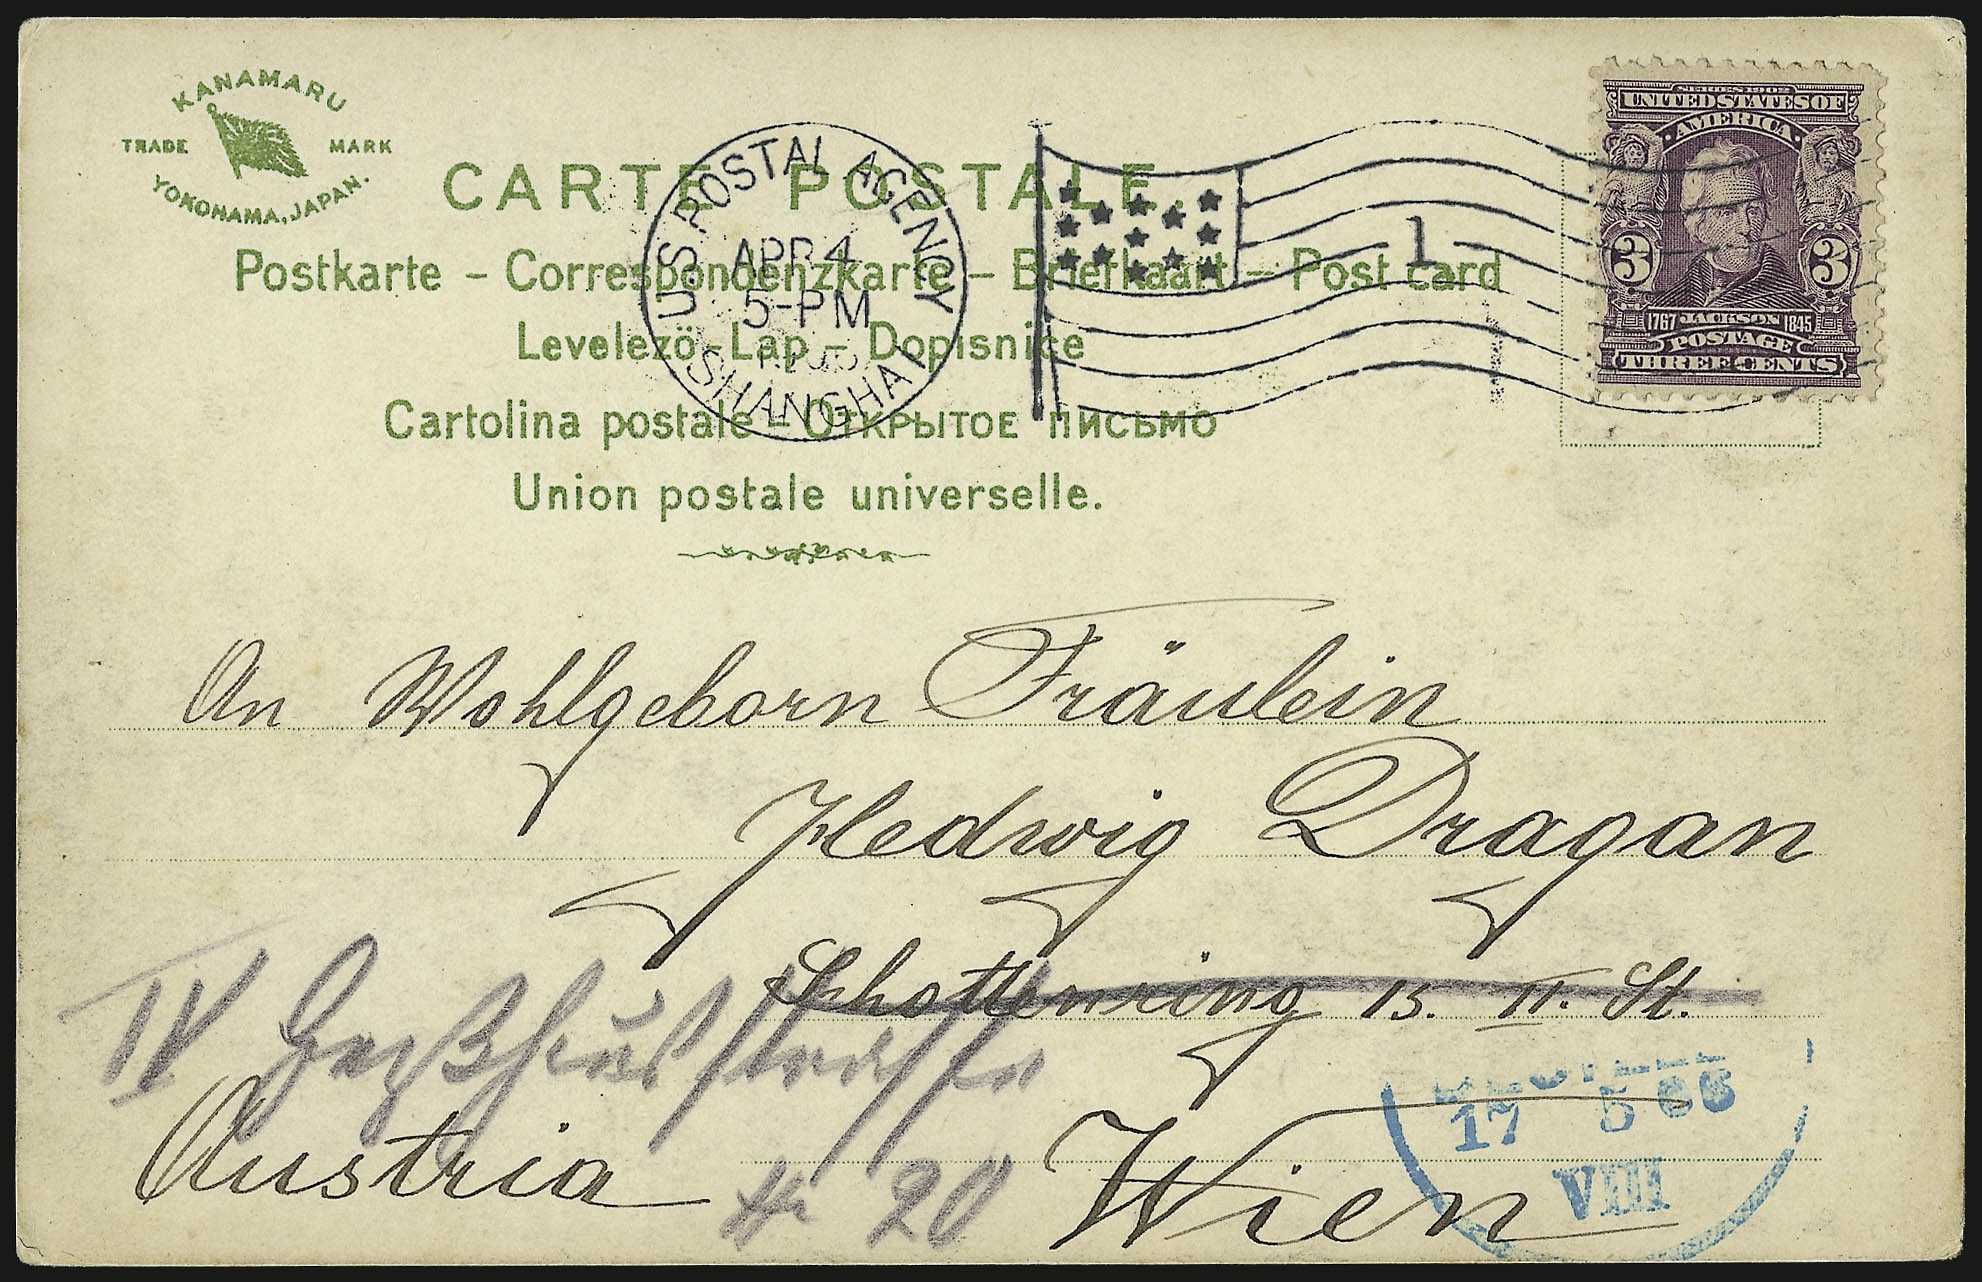 KANAMARU
TRADE MARK
YOKOHAMA, JAPAN.
CARTE POSTALE.
Postkarte – Correspondenzkarte – Briefkaart – Post card
Levelezö-Lap – Dopisnice
Cartolina postale – Открытое письмо
Union postale universelle.
U.S. POSTAL AGENCY
APR 4
5-PM
SHANGHAI
1
SERIES 1902
UNITED STATES OF
AMERICA
3 3
1767 JACKSON 1845
POSTAGE
THREE CENTS
An Wohlgeborn Fräulein
Hedwig Dragan
Schottenring 13. II. St.
IV Gußhausstraße
Austria
N 20
Wien
17 5 06
VIII